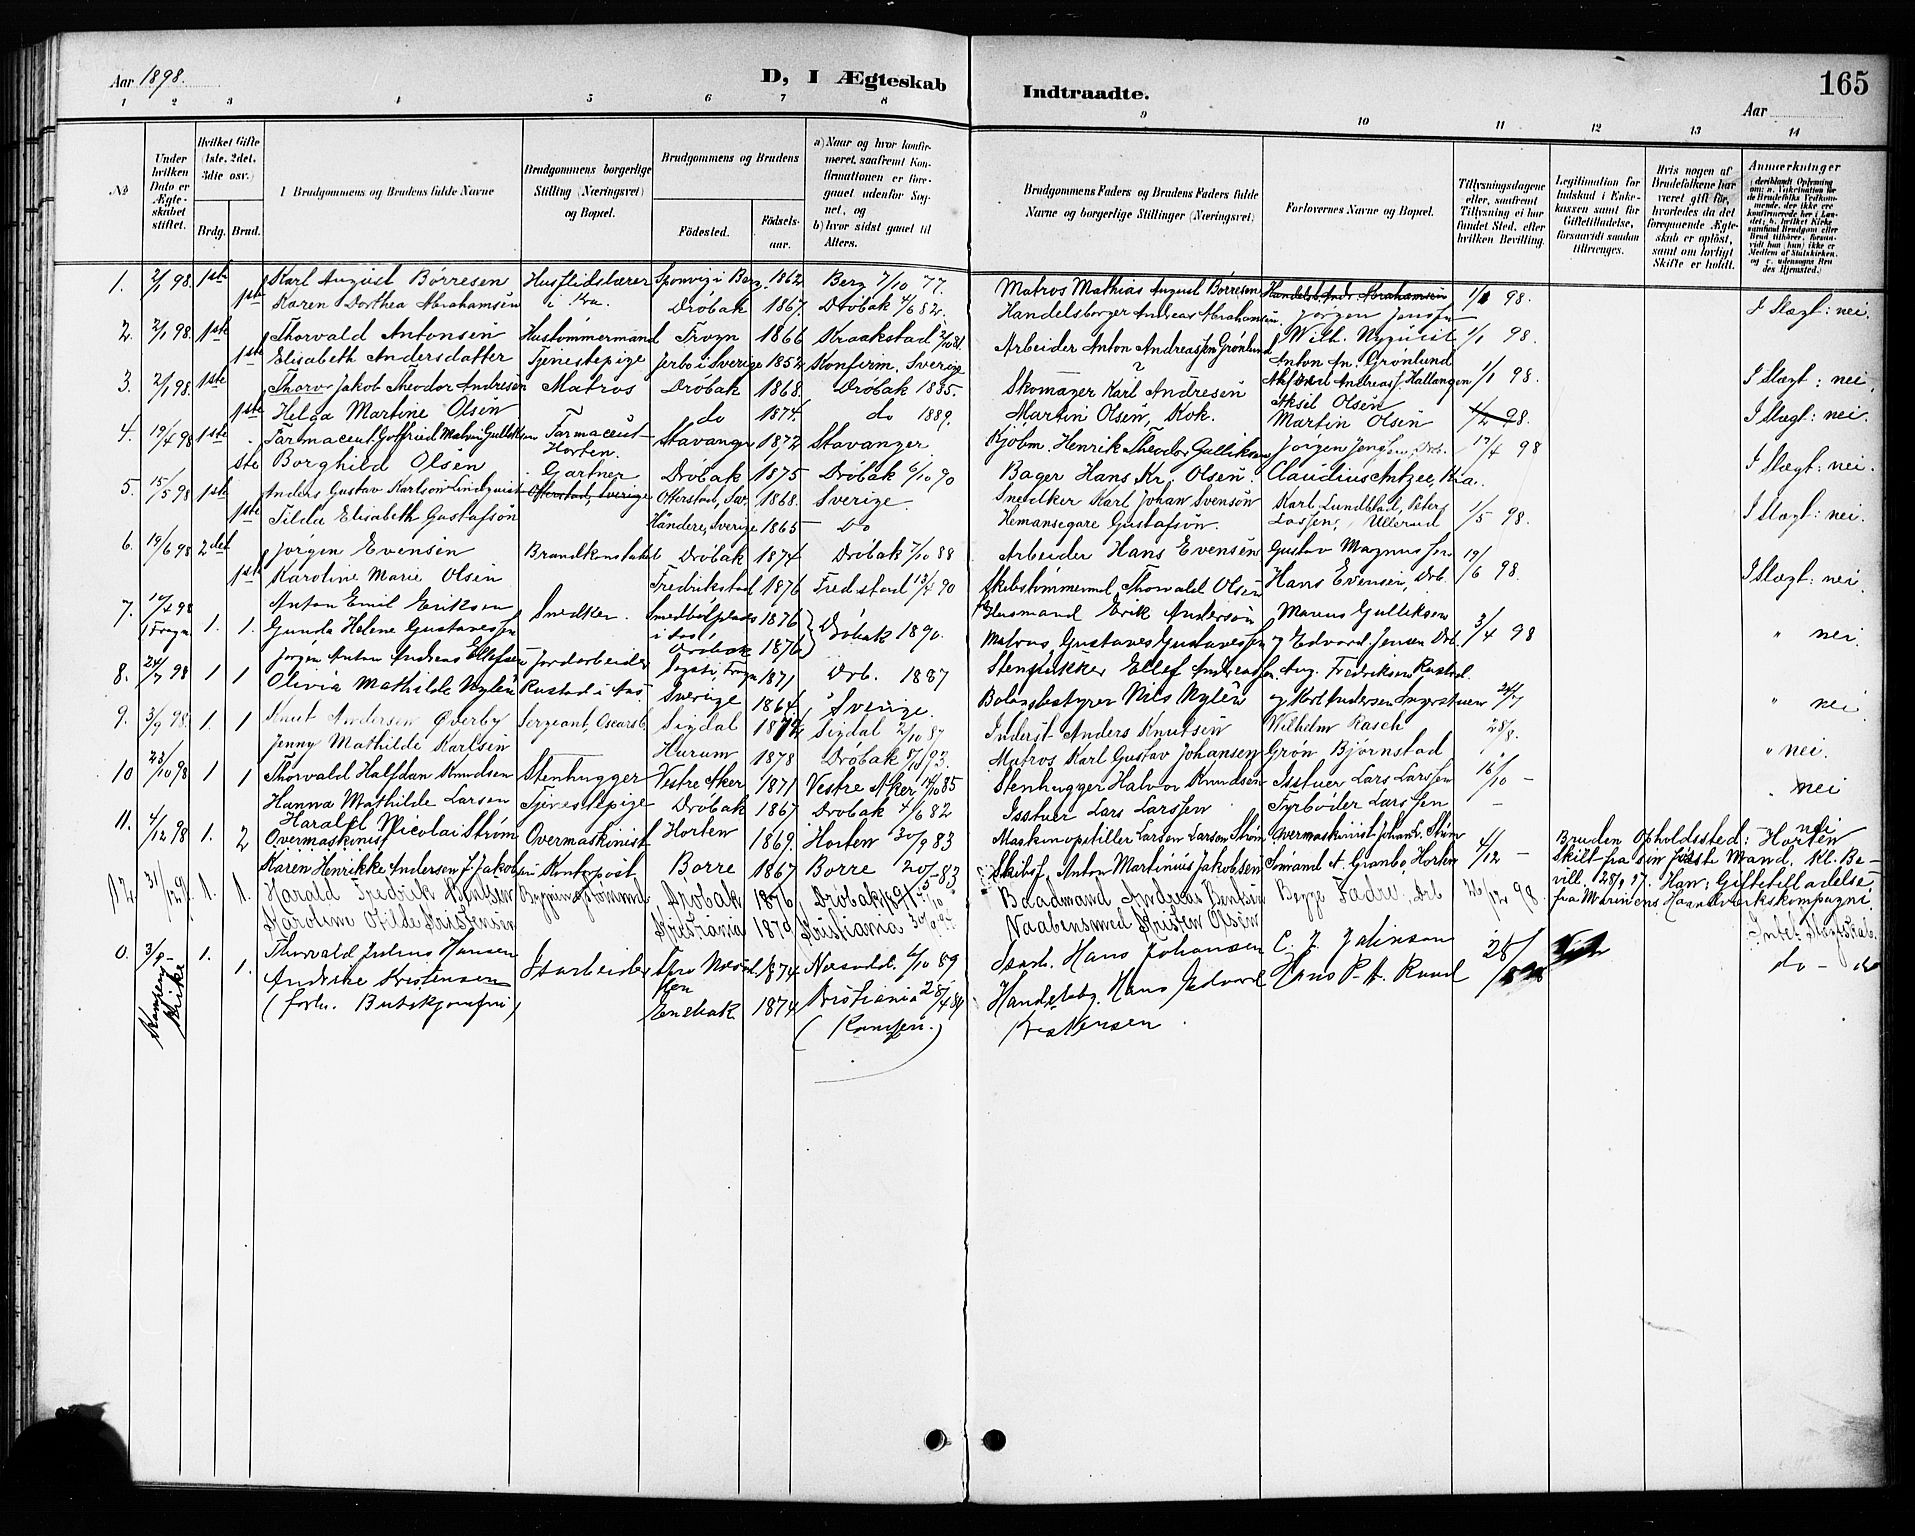 Aar 1898.
D, I Ægteskab
Indtraadte.
165
Aar
1 2 3 4 5 6 7 8 9 10 11 12 13 14
No
Under hvilken Dato er Ægteskabet stiftet.
Hvilket Gifte (1ste, 2det, 3die osv.)
Brdg. Brud.
1 Brudgommens og Brudens fulde Navne
Brudgommens borgerlige Stilling (Næringsvei) og Bopæl.
Brudgommens og Brudens
Fødested. Fødselsaar.
a) Naar og hvor konfirmeret, saafremt Konfirmationen er foregaaet udenfor Sognet, og
b) hvor sidst gaaet til Alters.
Brudgommens Faders og Brudens Faders fulde Navne og borgerlige Stillinger (Næringsvei)
Forlovernes Navne og Bopæl.
Tillysningsdagene eller, saafremt Tillysning ei har fundet Sted, efter hvilken Bevilling.
Legitimation for Indskud i Enkekassen samt for Giftetilladelse, forsaavidt saadan tiltrænges.
Hvis nogen af Brudefolkene har været gift før, hvorledes da det foregaaende Ægteskab er opløst, samt om lovligt Skifte er holdt.
Anmærkninger
1. 2/1 98. 1ste Karl August Børresen Husflidslærer Sponvig i Berg 1862 Berg 7/10 77. Matros Mathias August Børresen Handelsb. Andr. Abrahamsen 1/1 98. I Slægt: nei.
1ste Karen Dorthea Abrahamsen i Kra. Drøbak 1867. Drøbak 4/6 82. Handelsborger Andreas Abrahamsen. Jørgen Jensen
2. 2/1 98. 1ste Thorvald Antonsen Hustømmermand Frogn 1866 Kraakstad 2/10 81 Arbeider Anton Andreassen Grønlund Wilh. Nyquist 1/1 98.
1ste Elisabeth Andersdatter Tjenestepige Jerbo i Sverige 1852 Konfirm. Sverige ? Anton An. Grønlund I Slægt: nei.
3. 2/1 98. 1ste Jakob Theodor Andresen Matros Drøbak 1868. Drøbak 1885. Skomager Karl Andresen Andreas J. Hallangen 1/1 98.
1ste Helga Martine Olsen do 1874. do 1889. Martin Olsen, Kok. Aksil Olsen I Slægt: nei.
Martin Olsen 1/2 98.
4. 19/4 98 1ste Farmaceut Gotfried Malvin Gulliksen Farmaceut Horten. Stavanger 1872 Stavanger. Kjøbm. Henrik Theodor Gulliksen Jørgen Jensen, Drb. 17/4 98 I Slægt: nei.
1ste Borghild Olsen Drøbak 1875 Drøbak 6/10 90 Bager Hans Kr. Olsen. Claudius Antzee, Kra.
5. 15/5 98 1ste Anders Gustav Karlson Lindquist Gartner Otterstad, Sverige Otterstad, Sv. 1868. Sverige. Snedker Karl Johan Svensøn Karl Lundblad, Peter Lassen, Ullerud 1/5 98. I Slægt: nei.
1ste Tilda Elisabeth Gustafsøn Händere, Sverige 1865 Do Hemansegare Gustafsøn.
6. 19/6 98 2det Jørgen Evensen Brandkonstabel Drøbak 1874 Drøbak 7/10 88 Arbeider Hans Evensen Gustav Magnussen 19/6 98.
1ste Karoline Marie Olsen Fredrikstad 1876 Fredstad 13/4 90 Skibstømmermd. Thorvald Olsen Hans Evensen, Drb. I Slægt: nei.
7. 98 i Frogn 1. 1. Anton Emil Eriksen Snedker. i Aas, 1876 Drøbak 1890. Husmand Erik Andersøn Marius Gulliksen 3/4 98
Gunda Helene Gustavessen Drøbak 1876 Matros Gustaves Gustavessen og Edvard Jensen Drb. " nei.
8. 24/7 98 1 1 Jørgen Anton Andreas Ellefsen Jordarbeider Frogn 1871 Drb. 1887 Stenpukker Ellef Andreassen Aug. Fredriksen Rustad.
Olivia Mathilde Nylén Rustad i Aas Sverige 1864. Sverige. Bolagsbestyrer Nils Nylén og Karl Andersen 24/7 " nei.
9. 3/9 98. 1. 1 Knut Andersen Øverby Sergeant, Oscarsb. Sigdal Sigdal 2/10 87 Inderst Anders Knutsen Wilhelm Rasch 28/8.
Jenny Mathilde Karlsen Hurum 1878 Drøbak 93. Matros Karl Gustav Johansen Grøn Bjørnstad " nei.
10 23/10 98 1 1 Thorvald Halfdan Knudsen Stenhugger Vestre Aker 1871 Vestre Aker 85 Stenhugger Halvor Knudsen Isstuer Lars Larssen 16/10 –
Hanna Mathilde Larsen Tjenestepige Drøbak 1867 Drøbak 4/6 82 Isstuer Lars Larssen Fyrbøder Larssen – nei
11. 4/12 98 1. 2 Overmaskinist Harald Nicolai Strøm Overmaskinist Horten 1869. Horten 30/9 83 Maskinopstiller Larsen Strøm Overmaskinist Johan L. Strøm 4/12 – Bruden Opholdssted: Horten nei
Karen Henrikke Andersen f. Jakobsen Kontorpost Borre 1867 Borre 20/5 – 83 Skibsf. Anton Martinius Jakobsen Sømand A. Granbo, Horten Skilt fra sin første Mand. Kl. Bevill. 28/9 97. Han: Giftetilladelse fra Marinens Haandverkskompagni.
12 31/12 98. 1. 1. Harald Fredrik Bentsen Bygningstømmermd Drøbak 1876 Drøbak Baadmand Andreas Bentsen Begge Fædre, Drb 26/12 98.
Karoline Otilde Kristensen Kristiania 1879 Kristiania Vaabensmed Kristen Olsen Intet Slægtskab.
0. 3/8 – Kampens Kirke 1. Thorvald Julius Hansen Isarbeider 1874 Nesodd. 6/10 89 Isarb. Hans Johansen C. J. Johnson 28/ do – do
1. Andrine Kristensen Enebak 1874 Kristiania 28/4 89 Handelsbg. Hans Edvard Kristensen Hans P. A. Ruud
(forlv. )
(Kampen.)